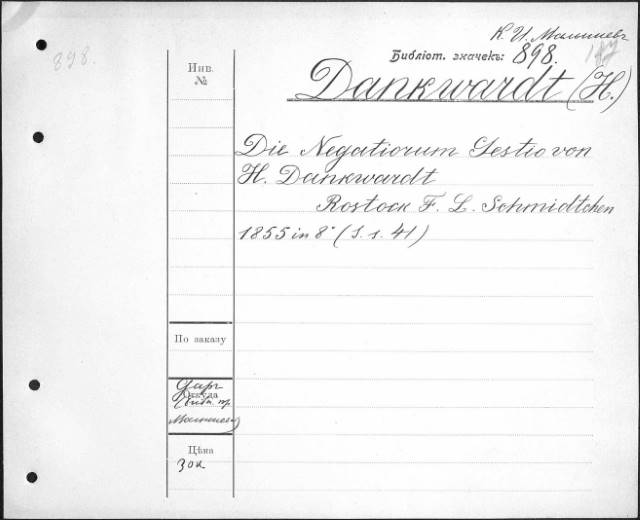 К. И. Малышевъ
898.
Библіот. значекъ: 898.
Инв.
№
Dankwardt (H.)
Die Negatiorum Gestio von
H. Dankwardt
Rostock F. L. Schmidtchen
1855 in 8° (S. 1. 41)
По заказу
Откуда
Малышева)
Цѣна
30 к